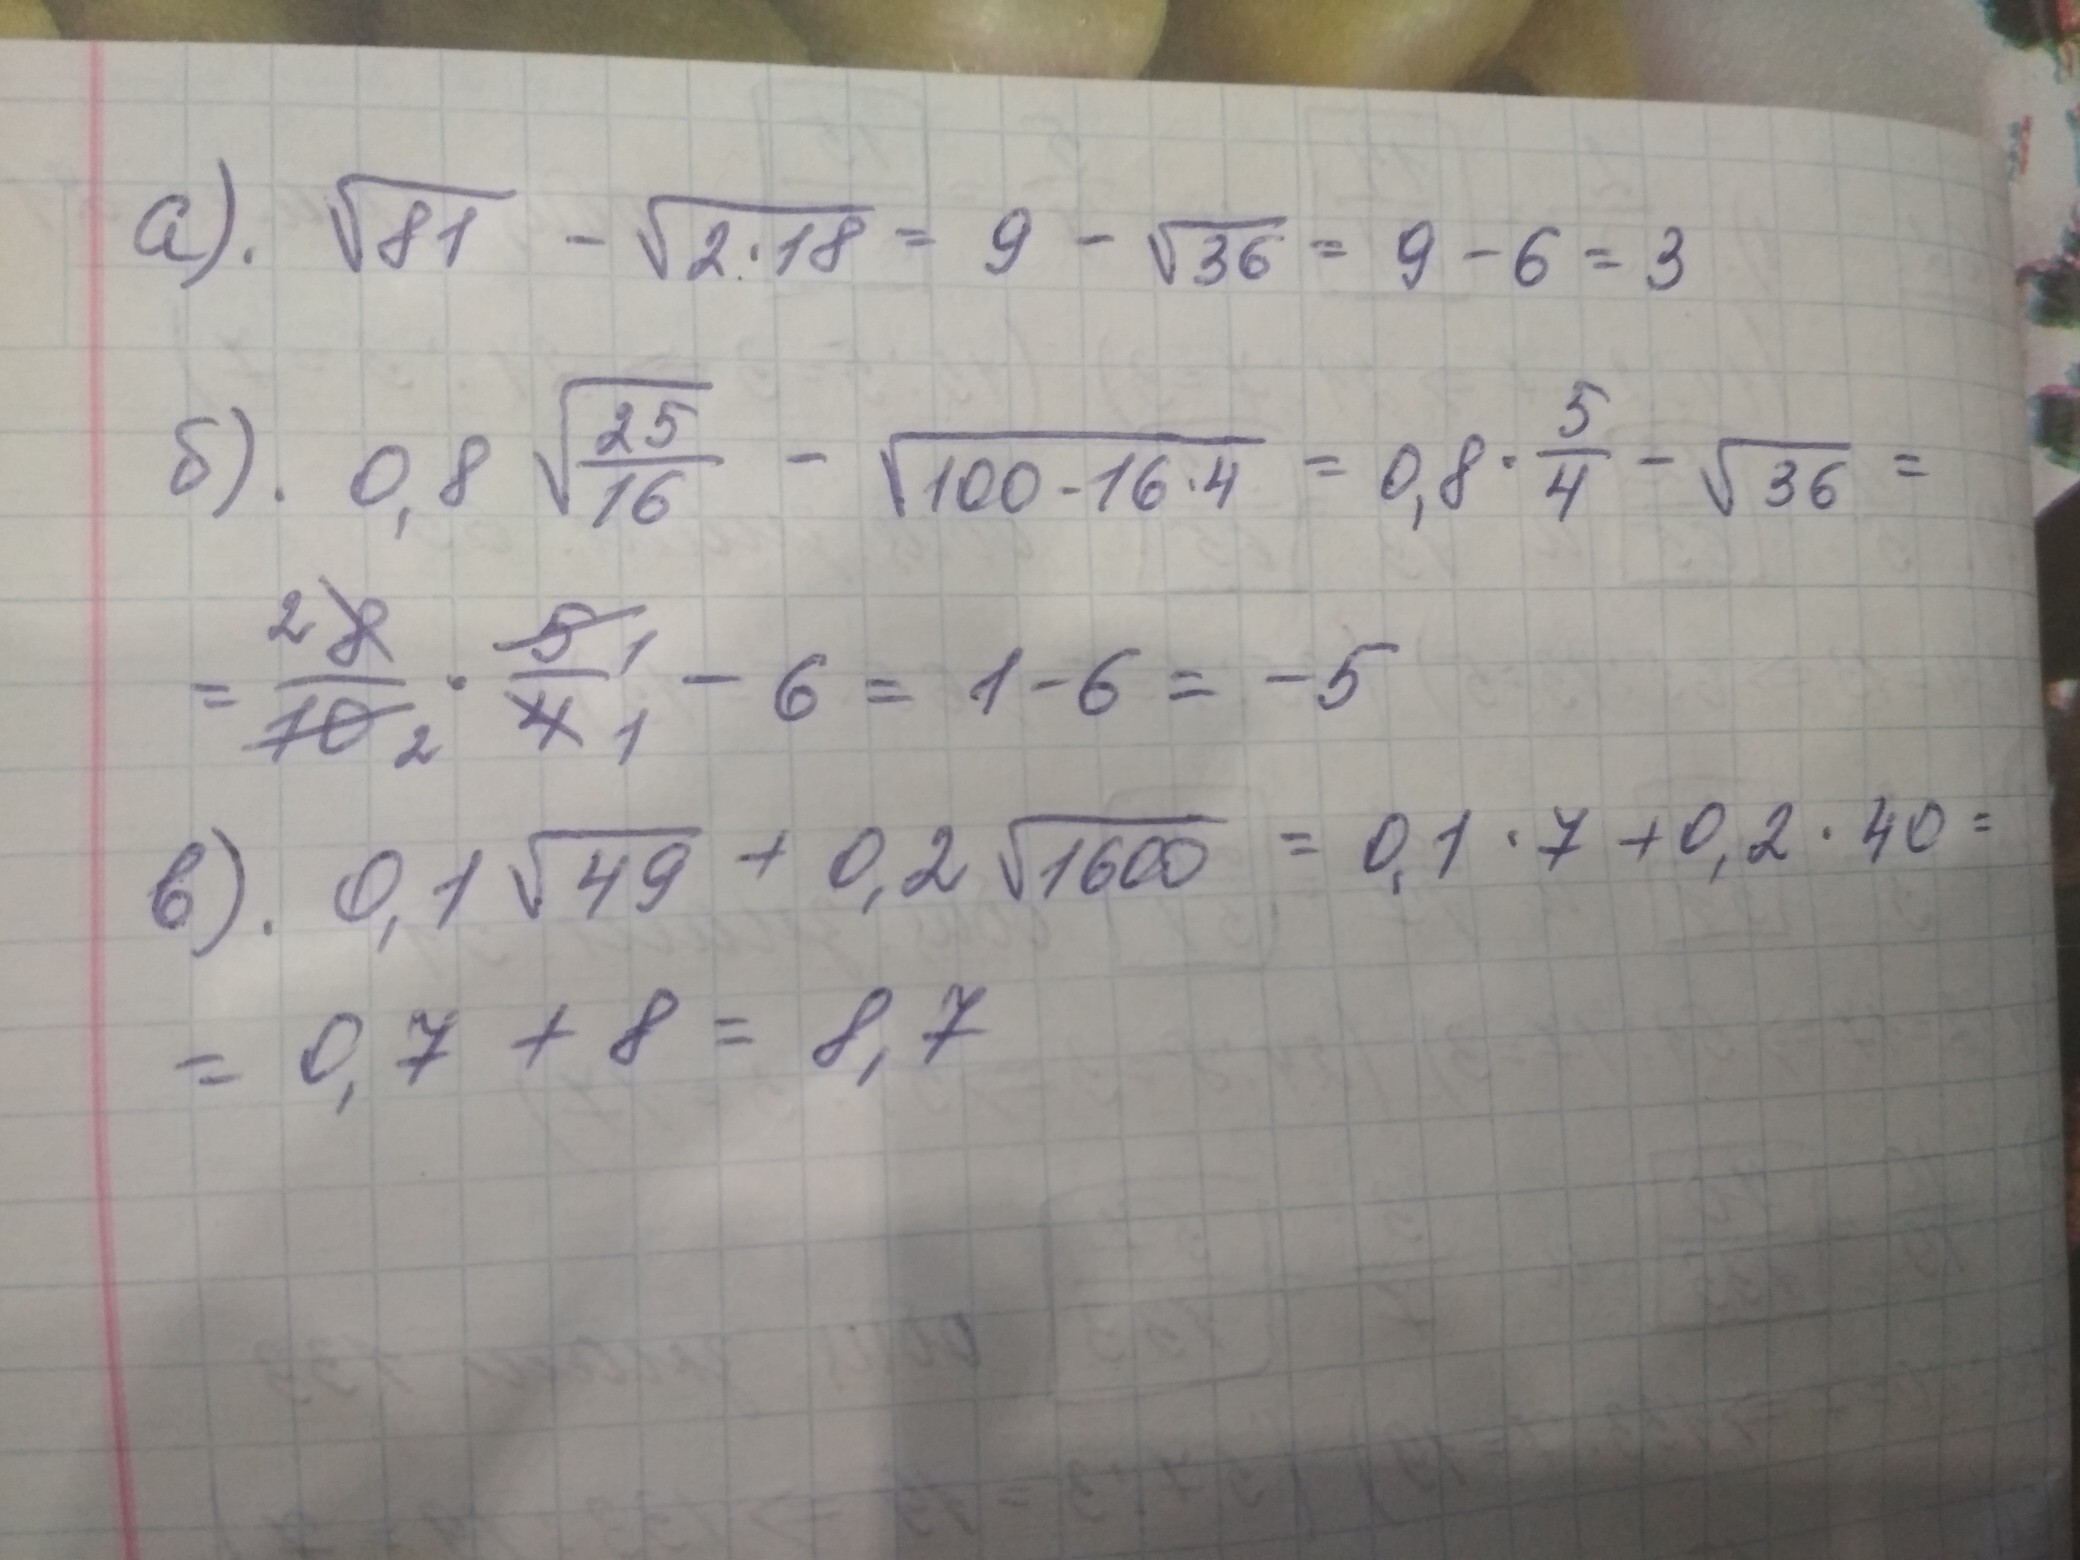 а). √81 - √2·18 = 9 - √36 = 9 - 6 = 3
б). 0,8 √25/16 - √100-16·4 = 0,8 · 5/4 - √36 =
= 2 8/10 2 · 5 1/4 1 - 6 = 1 - 6 = -5
в). 0,1 √49 + 0,2 √1600 = 0,1 · 7 + 0,2 · 40 =
= 0,7 + 8 = 8,7